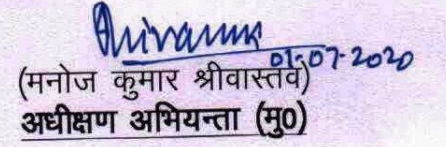 01-07-2020
(मनोज कुमार श्रीवास्तव)
अधीक्षण अभियन्ता (मु0)